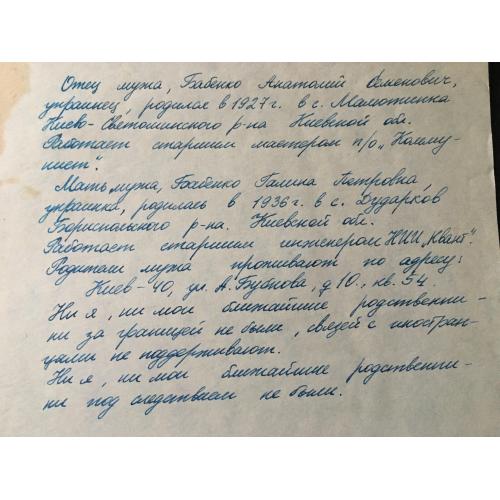 Отец мужа, Бабенко Анатолий Семенович,
украинец, родился в 1927 г. в с. Малютинка
Киево-Святошинского р-на Киевской обл.
Работает старшим мастером п/о „Комму-
нист".
Мать мужа, Бабенко Галина Петровна,
украинка, родилась в 1936 г. в с. Дударков
Бориспольского р-на. Киевской обл.
Работает старшим инженером НИИ „Квант".
Родители мужа проживают по адресу:
Киев-40, ул. А. Бубнова, д 10., кв. 54.
Ни я, ни мои ближайшие родственни-
ки за границей не были, связей с иностран-
цами не поддерживают.
Ни я, ни мои ближайшие родственни-
ки под следствием не были.